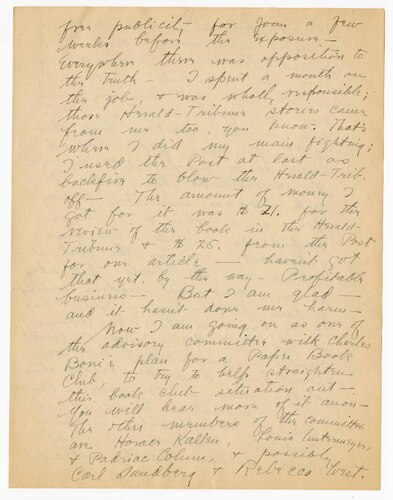 free publicity for Joan a few
weeks before the exposure —
everywhere there was opposition to
the truth — I spent a month on
the job, & was wholly responsible;
those Herald-Tribune stories came
from me too, you know. That's
where I did my main fighting;
I used the Post at last as
backfire to blow the Herald-Trib.
off — The amount of money I
got for it was $21. for the
review of the book in the Herald-
Tribune & $25. from the Post
for one article — haven't got
that yet, by the way — Profitable
business — But I am glad —
and it hasn't done me harm —
Now I am going on as one of
the advisory committee with Charles
Boni's plan for a Paper Book
Club, to try to help straighten
this book club situation out —
You will hear more of it anon —
The other members of the committee
are Horace Kallen, Louis Untermeyer,
& Padraic Colum, & possibly
Carl Sandberg & Rebecca West.